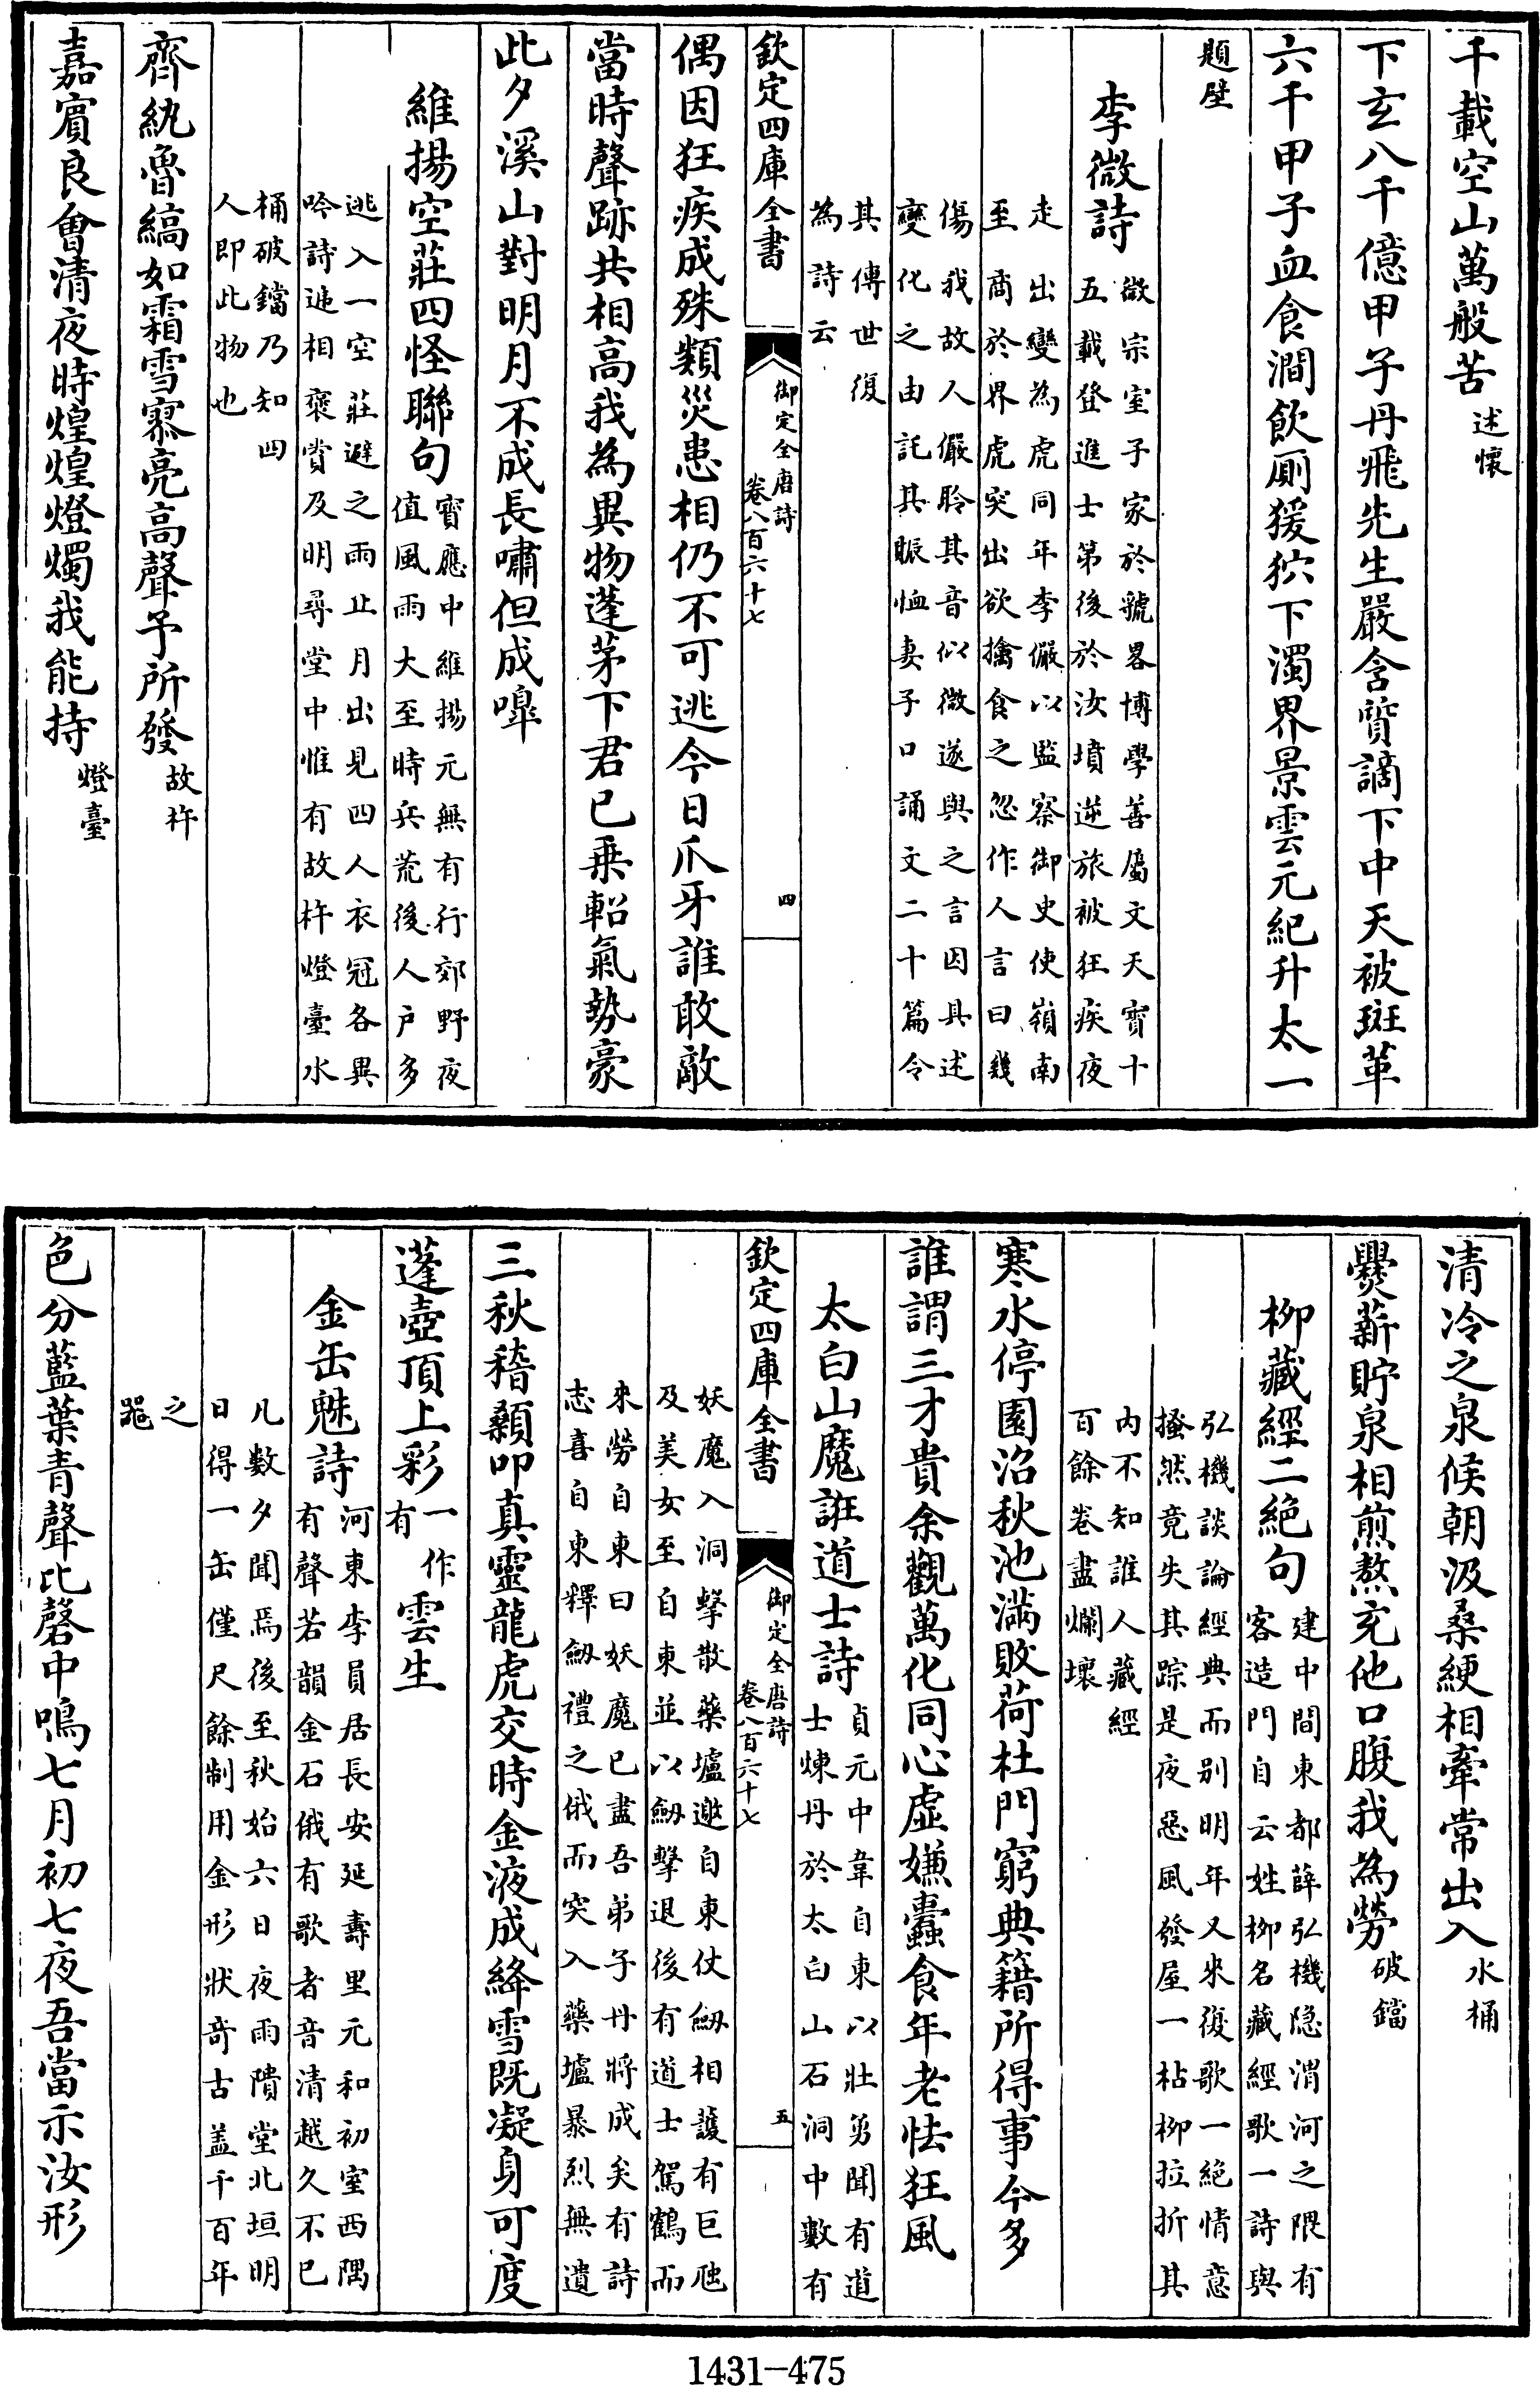 千載空山萬般苦述懷
下玄八千億甲子丹飛先生嚴含質謫下中天被斑革
六千甲子血食澗飲厠猨狖下濁界景雲元紀升太一
題壁
李微詩
微宗室子家於虢畧博學善屬文天寳十
五載登進士第後於汝墳逆旅被狂疾夜
走出變為虎同年李儼以監察御史使嶺南
至商於界虎突出欲擒食之忽作人言曰幾
傷我故人儼聆其音似微遂與之言因具述
變化之由託其賑恤妻子口誦文二十篇令
其傳世復
為詩云
欽定四庫全書
御定全唐詩
卷八百六十七
四
偶因狂疾成殊類災患相仍不可逃今日爪牙誰敢敵
當時聲跡共相高我為異物蓬茅下君已乗軺氣勢豪
此夕溪山對明月不成長嘯但成嘷
維揚空莊四怪聯句
寳應中維揚元無有行郊野夜
值風雨大至時兵荒後人户多
逃入一空莊避之雨止月出見四人衣冠各異
吟詩遞相襃賞及明尋堂中惟有故杵燈臺水
桶破鐺乃知四
人即此物也
齊紈魯縞如霜雪寥亮高聲予所發故杵
嘉賓良會清夜時煌煌燈燭我能持燈臺
清冷之泉候朝汲桑綆相牽常出入水桶
爨薪貯泉相煎熬充他口腹我為勞破鐺
柳藏經二絶句
建中間東都薛弘機隐渭河之隈有
客造門自云姓柳名藏經歌一詩與
弘機談論經典而别明年又來復歌一絶情意
搔然竟失其踪是夜惡風發屋一枯柳拉折其
内不知誰人藏經
百餘卷盡爛壞
寒水停園沼秋池滿敗荷杜門窮典籍所得事今多
誰謂三才貴余觀萬化同心虚嫌蠹食年老怯狂風
太白山魔誑道士詩
貞元中韋自東以壯勇聞有道
士煉丹於太白山石洞中數有
欽定四庫全書
御定全唐詩
卷八百六十七
五
妖魔入洞擊散藥壚邀自東仗劒相護有巨虺
及美女至自東並以劒擊退後有道士駕鶴而
來勞自東曰妖魔已盡吾弟子丹將成矣有詩
志喜自東釋劒禮之俄而突入藥壚暴烈無遺
三秋稽顙叩真靈龍虎交時金液成絳雪既凝身可度
蓬壺頂上彩一作有雲生
金缶魅詩
河東李員居長安延壽里元和初室西隅
有聲若韻金石俄有歌者音清越久不已
凡數夕聞焉後至秋始六日夜雨隤堂北垣明
日得一缶僅尺餘制用金形狀奇古盖千百年
之
噐
色分藍葉青聲比磬中鳴七月初七夜吾當示汝形
1431-475